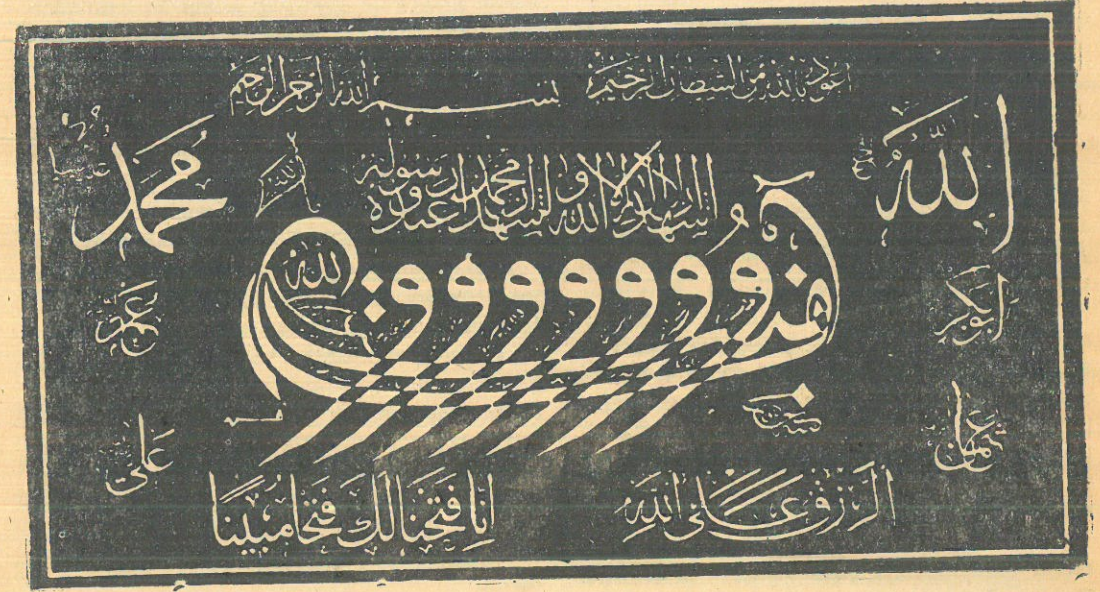 اعوذ بالله من الشيطان الرجيم
بسم الله الرحمن الرحيم
الله
محمد
اشهد ان لا اله الا الله و اشهد ان محمدا عبده و رسوله
الله
ابوبكر
عمر
عثمان
علي
الرزق علی الله
انا فتحنا لك فتحا مبينا